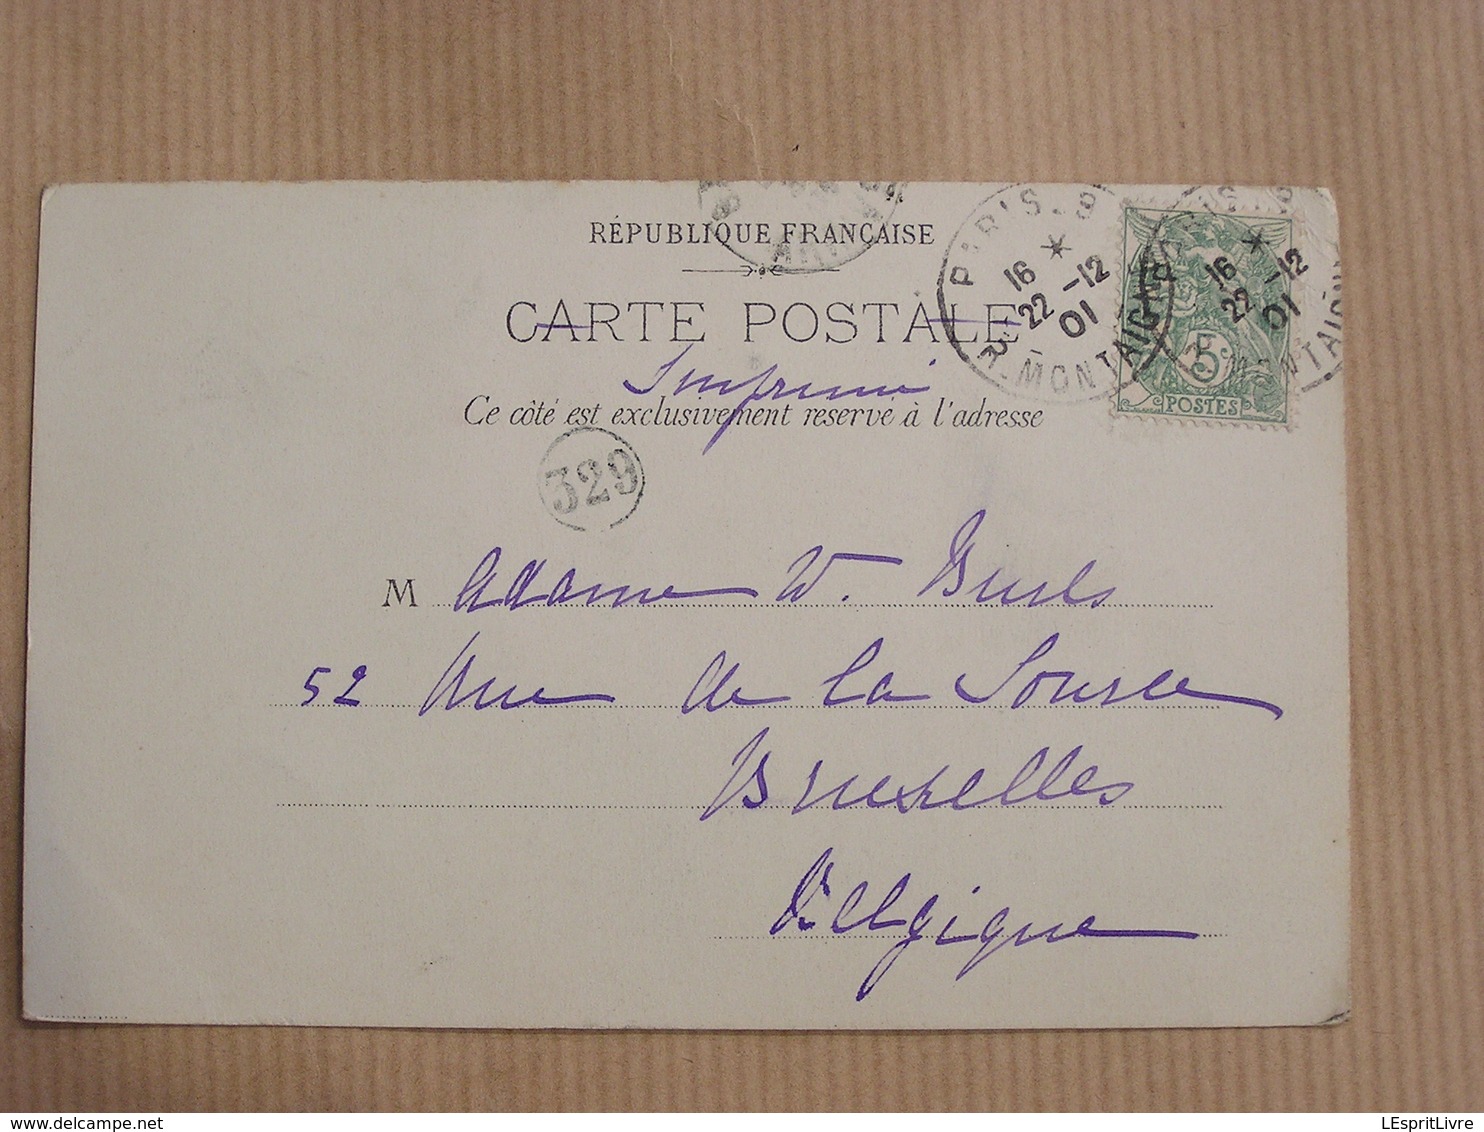 RÉPUBLIQUE FRANÇAISE
CARTE POSTALE
Imprimé
Ce côté est exclusivement reservé à l'adresse
PARIS-9
16
22-12
01
R. MONTAIGNE
16
22-12
01
5c
POSTES
329
Madame W.
52 Rue de la Source
Bruxelles
Belgique
LEspritLivre